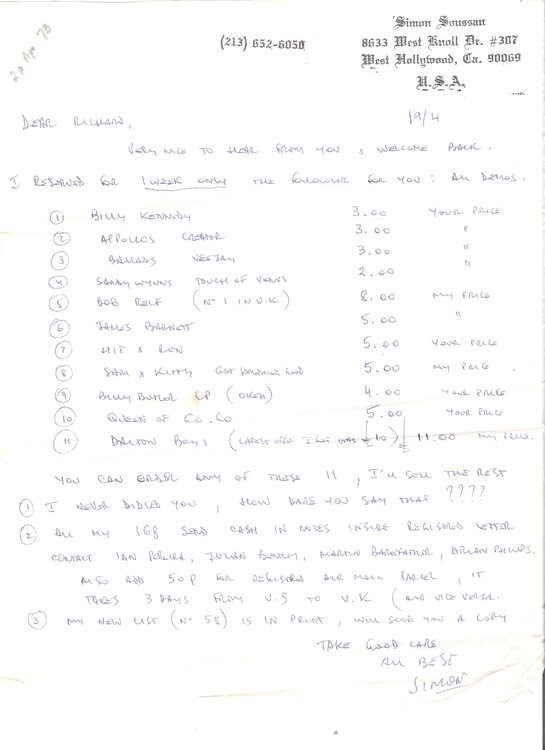 Simon Soussan
8633 West Knoll Dr. #307
West Hollywood, Ca. 90069
U.S.A.
(213) 652-6050
20 Apr 73
19/4
DEAR RICHARD,
VERY NICE TO HEAR FROM YOU, WELCOME BACK.
I RESERVED FOR 1 WEEK ONLY THE FOLLOWING FOR YOU: ALL DEMOS.
① BILLY KENNEDY 3.00 YOUR PRICE
② APPOLLOS CREATOR 3.00 "
③ BALLADS VEEJAY 3.00 "
④ SANDY WYNNS TOUCH OF VENUS 2.00
⑤ BOB RELF (No 1 IN U.K) 8.00 MY PRICE
⑥ JAMES BARNETT 5.00 "
⑦ HIT & RUN 5.00 YOUR PRICE
⑧ SAM & KITTY GOT SOMETHING GOOD 5.00 MY PRICE
⑨ BILLY BUTLER LP (OKEH) 4.00 YOUR PRICE
⑩ QUEEN OF GO.GO 5.00 YOUR PRICE
⑪ DALTON BOYS (LARGEST OFFER I GOT WAS £10) £11.00 MY PRICE.
YOU CAN ORDER ANY OF THESE 11, I'LL SELL THE REST
① I NEVER DIDLED YOU, HOW DARE YOU SAY THAT ????
② ALL MY SEND CASH IN NOTES INSIDE REGISTRED LETTER
CONTACT IAN PEREIRA, JULIAN BENTLEY, MARTIN BARNFATHER, BRIAN PHILIPS.
ALSO ADD 50P FOR REGISTRED AIR MAIL PARCEL, IT
TAKES 3 DAYS FROM U.S TO U.K (AND VICE VERSA.
③ MY NEW LIST (No 58) IS IN PRINT, WILL SEND YOU A COPY
TAKE GOOD CARE
ALL BEST
SIMON